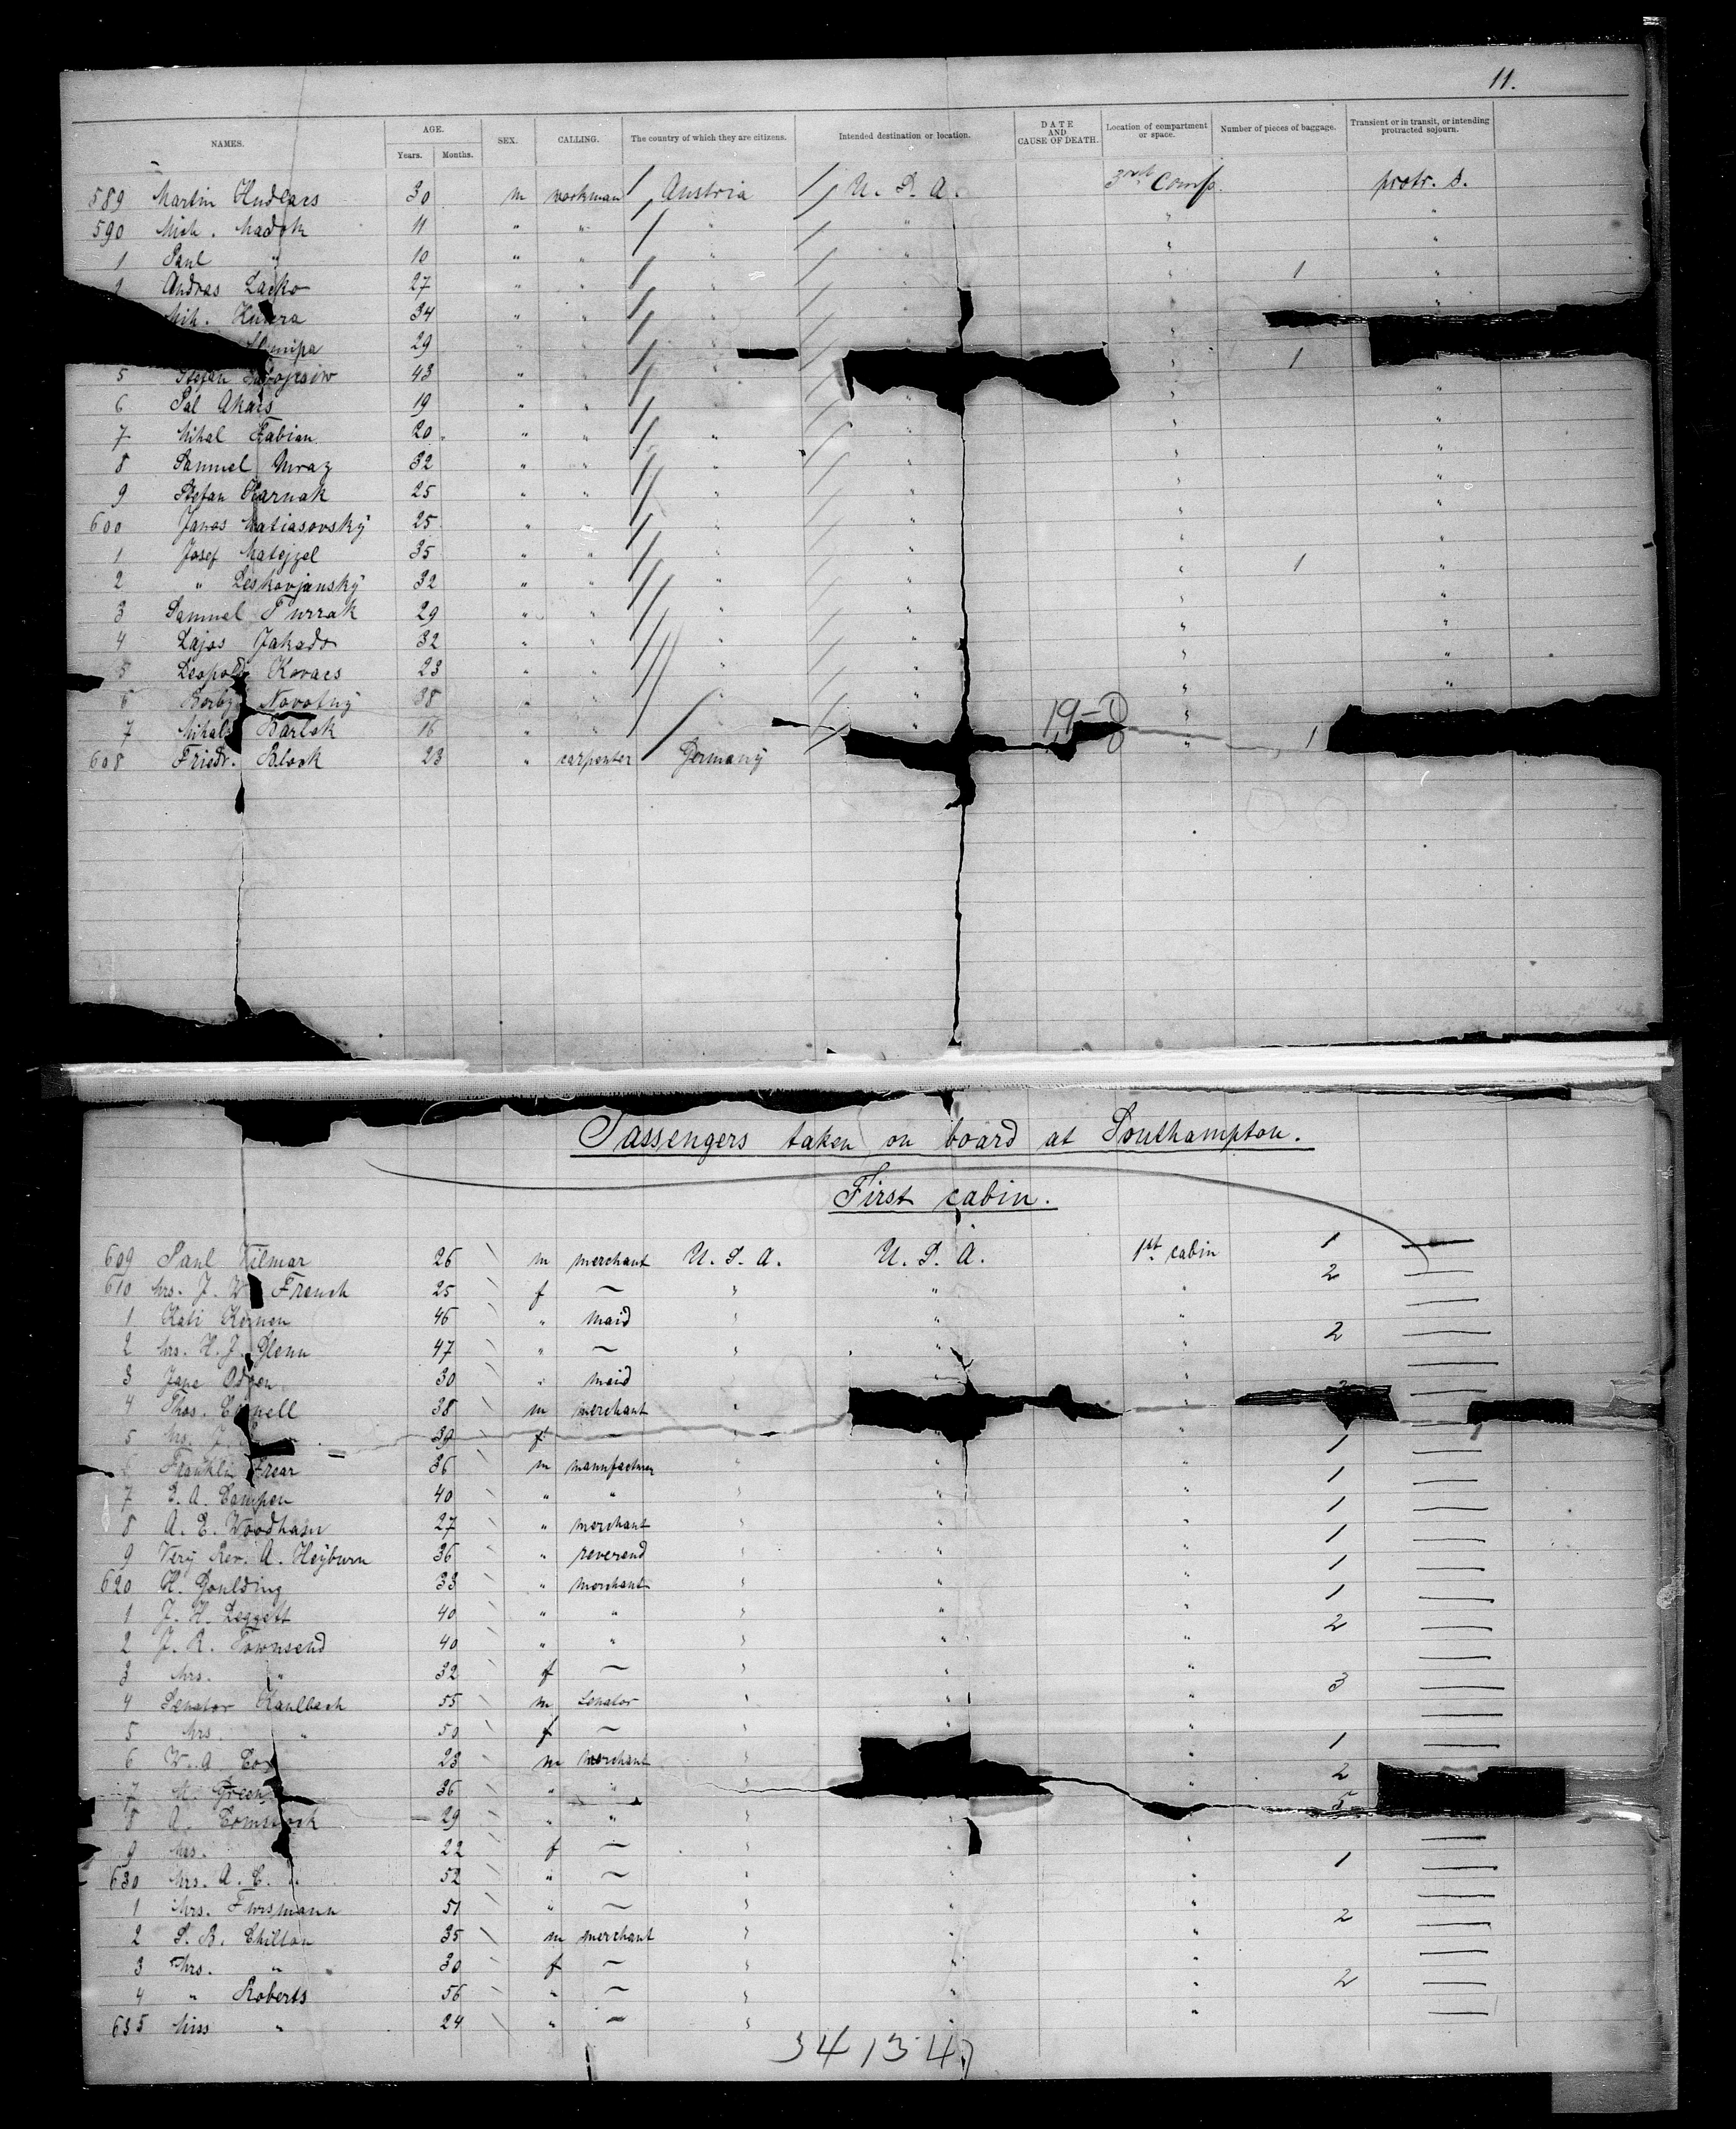 11.
NAMES. AGE. Years. Months. SEX. CALLING. The country of which they are citizens. Intended destination or location. DATE AND CAUSE OF DEATH. Location of compartment or space. Number of pieces of baggage. Transient or in transit, or intending protracted sojourn.
589 Martin 30 m workman Austria U. S. A. 3rd Comp. protr. s.
590 Mich. 11 " " " " " "
1 Paul " 10 " " " " " "
Andras Lacko 27 " " " " " 1 "
Mih. 34 " " " "
29 " 1
5 Stefan 43 " "
6 Pal 19 " " " "
7 Mihal Fabian 20 " " " " " "
8 Samuel Mraz 32 " " " " " "
9 Stefan Harnak 25 " " " " " "
600 Janos Matiasovský 25 " " " " "
1 Josef Matejzel 35 " " " " " 1 "
2 " Leskovjanský 32 " " " " " "
3 Samuel Turrak 29 " " " " "
4 Lajos 32 " " " " " "
5 Leopold Kovacs 23 " " " " "
6 Novotny 38 " " " "
7 Mihaly Barlok 16 " " 19-0 "
608 Friedr. Block 23 " carpenter Germany " 1
Passengers taken on board at Southampton.
First cabin.
609 Paul Vilmar 26 m merchant U. S. A. U. S. A. 1st cabin 1 —
610 Mrs. J. W. French 25 f — " " " 2 —
1 Kati 46 " maid " " " —
2 Mrs. H. J. Glenn 47 " — " " " 2 —
3 Jane 30 " maid " " " —
4 Thos. 38 m merchant " " —
5 Mrs. J. 39 f — " "
Franklin Frear 36 m manufacturer " " " 1 —
7 40 " " " " " 1 —
8 A. E. Woodham 27 " merchant " " " 1 —
9 Very Rev. A. Heyburn 36 " reverend " " " 1 —
620 H. Goulding 33 " merchant " " " 1 —
1 J. H. Leggett 40 " " " " " 1 —
2 J. R. Townsend 40 " " " " " 2 —
3 Mrs. " 32 f — " " " —
4 Senator Kaulbach 55 m Senator " " " 3 —
5 Mrs. " 50 f — " " " —
6 W. A. 23 m merchant " " 1 —
7 M. Green 36 " " " " 2
8 A. Comstock 29 " " " 5
9 Mrs. 22 f — " " " —
630 Mrs. A. C. " 52 " — " " " 1 —
1 Mrs. Fursmann 51 " — " " " —
2 S. B. Chilton 35 m merchant " " " 2 —
3 Mrs. " 30 f — " " " —
4 " Roberts 56 " — " " " 2 —
635 Miss " 24 " — " " " —
34 134